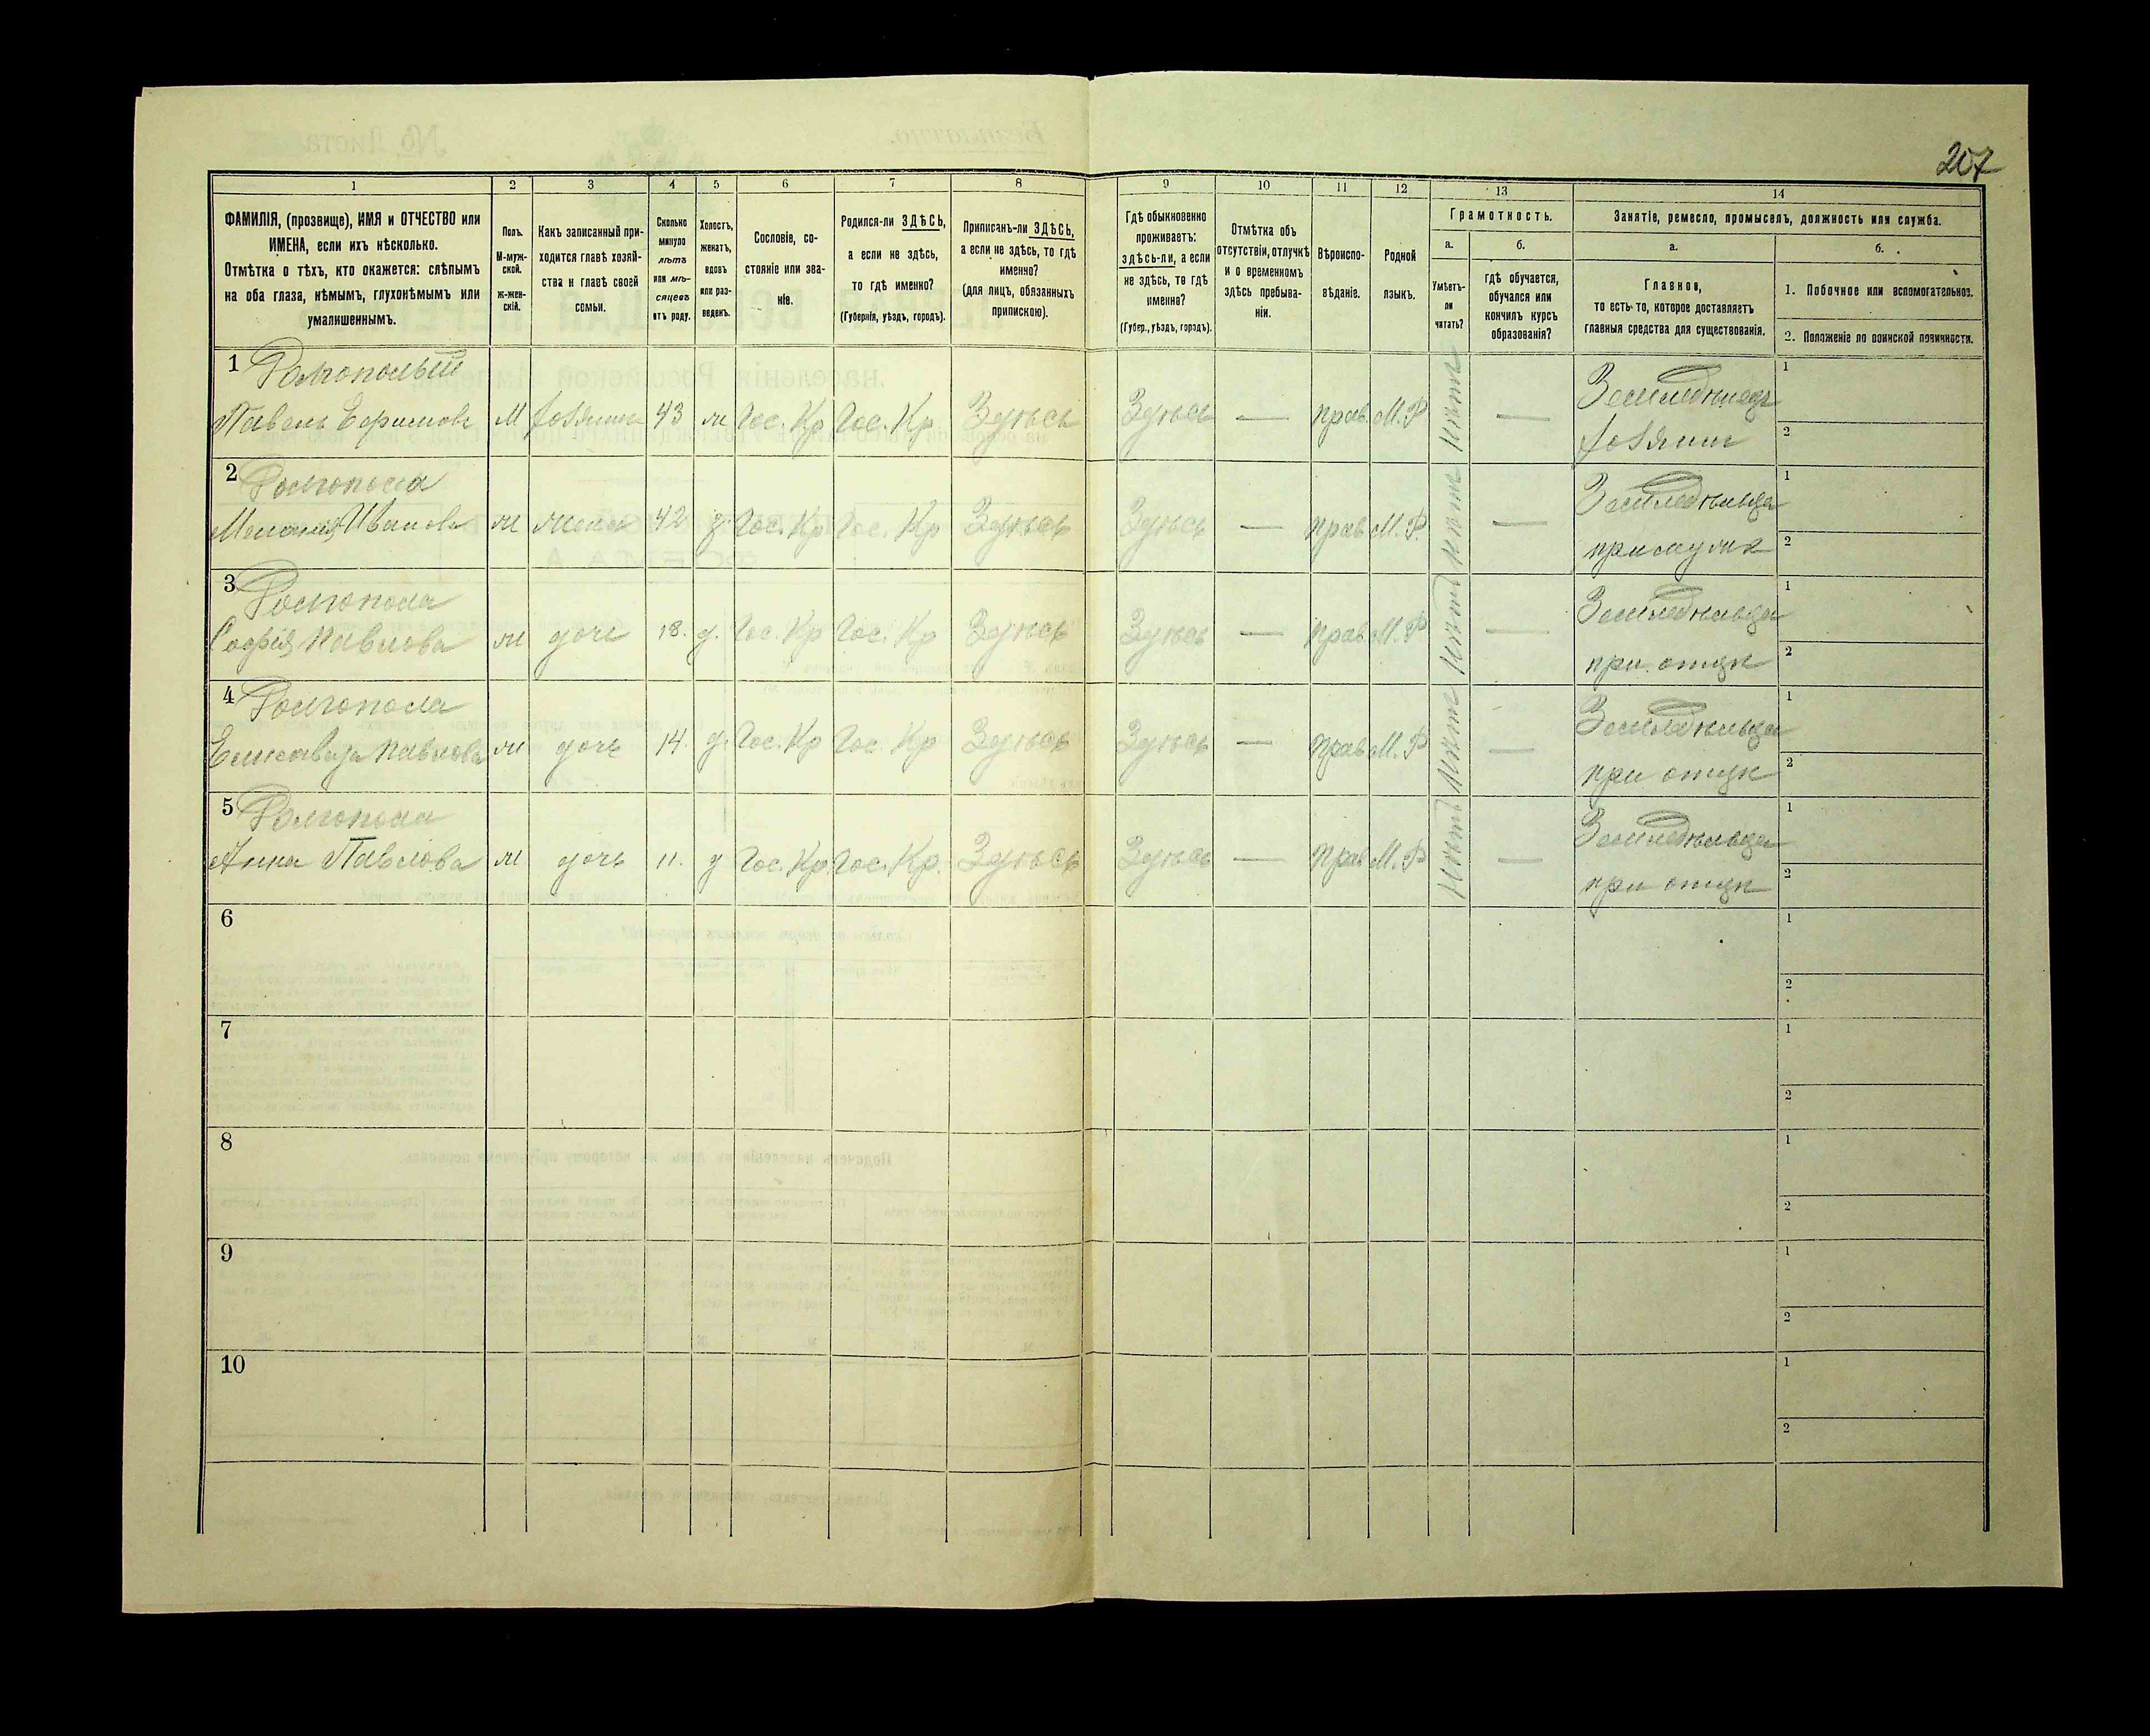 207
1 2 3 4 5 6 7 8 9 10 11 12 13 14
ФАМИЛІЯ, (прозвище), ИМЯ и ОТЧЕСТВО или
ИМЕНА, если ихъ нѣсколько.
Отмѣтка о тѣхъ, кто окажется: слѣпымъ
на оба глаза, нѣмымъ, глухонѣмымъ или
умалишеннымъ.
Полъ.
М-муж-
ской.
ж-жен-
скій.
Какъ записанный при-
ходится главѣ хозяй-
ства и главѣ своей
семьи.
Сколько
минуло
лѣтъ
или мѣ-
сяцевъ
отъ роду.
Холостъ,
женатъ,
вдовъ
или раз-
веденъ.
Сословіе, со-
стояніе или зва-
ніе.
Родился-ли ЗДѢСЬ,
а если не здѣсь,
то гдѣ именно?
(Губернія, уѣздъ, городъ).
Приписанъ-ли ЗДѢСЬ,
а если не здѣсь, то гдѣ
именно?
(для лицъ, обязанныхъ
припискою).
Гдѣ обыкновенно
проживаетъ:
здѣсь-ли, а если
не здѣсь, то гдѣ
именно?
(Губер., уѣздъ, городъ).
Отмѣтка объ
отсутствіи, отлучкѣ
и о временномъ
здѣсь пребыва-
ніи.
Вѣроиспо-
вѣданіе.
Родной
языкъ.
Грамотность.
а.
Умѣетъ-
ли
читать?
б.
гдѣ обучается,
обучался или
кончилъ курсъ
образованія?
Занятіе, ремесло, промыселъ, должность или служба.
а.
Главное,
то есть то, которое доставляетъ
главныя средства для существованія.
б.
1. Побочное или вспомогательное.
2. Положеніе по воинской повинности.
1 Долгополый Земледѣлецъ 1
Павелъ Ефимовъ М хозяинъ 43 ж Гос. Кр Гос. Кр Здѣсь Здѣсь — прав. М. Р нѣтъ — хозяинъ 2
2 Долгопола Земледѣльца 1
Иванова ж жена 42 з. Гос. Кр Гос. Кр Здѣсь Здѣсь — прав М. Р. нѣтъ — при мужѣ 2
3 Долгопола Земледѣльца 1
Софія Павлова ж дочь 18. д. Гос. Кр Гос. Кр Здѣсь Здѣсь — прав М. Р нѣтъ — при отцѣ 2
4 Долгопола Земледѣльца 1
Павлова ж дочь 14. д. Гос. Кр Гос. Кр Здѣсь Здѣсь — прав М. Р нѣтъ — при отцѣ 2
5 Долгопола Земледѣльца 1
Анна Павлова ж дочь 11. д Гос. Кр. Гос. Кр. Здѣсь Здѣсь — прав М. Р нѣтъ — при отцѣ 2
6 1
2
7 1
2
8 1
2
9 1
2
10 1
2